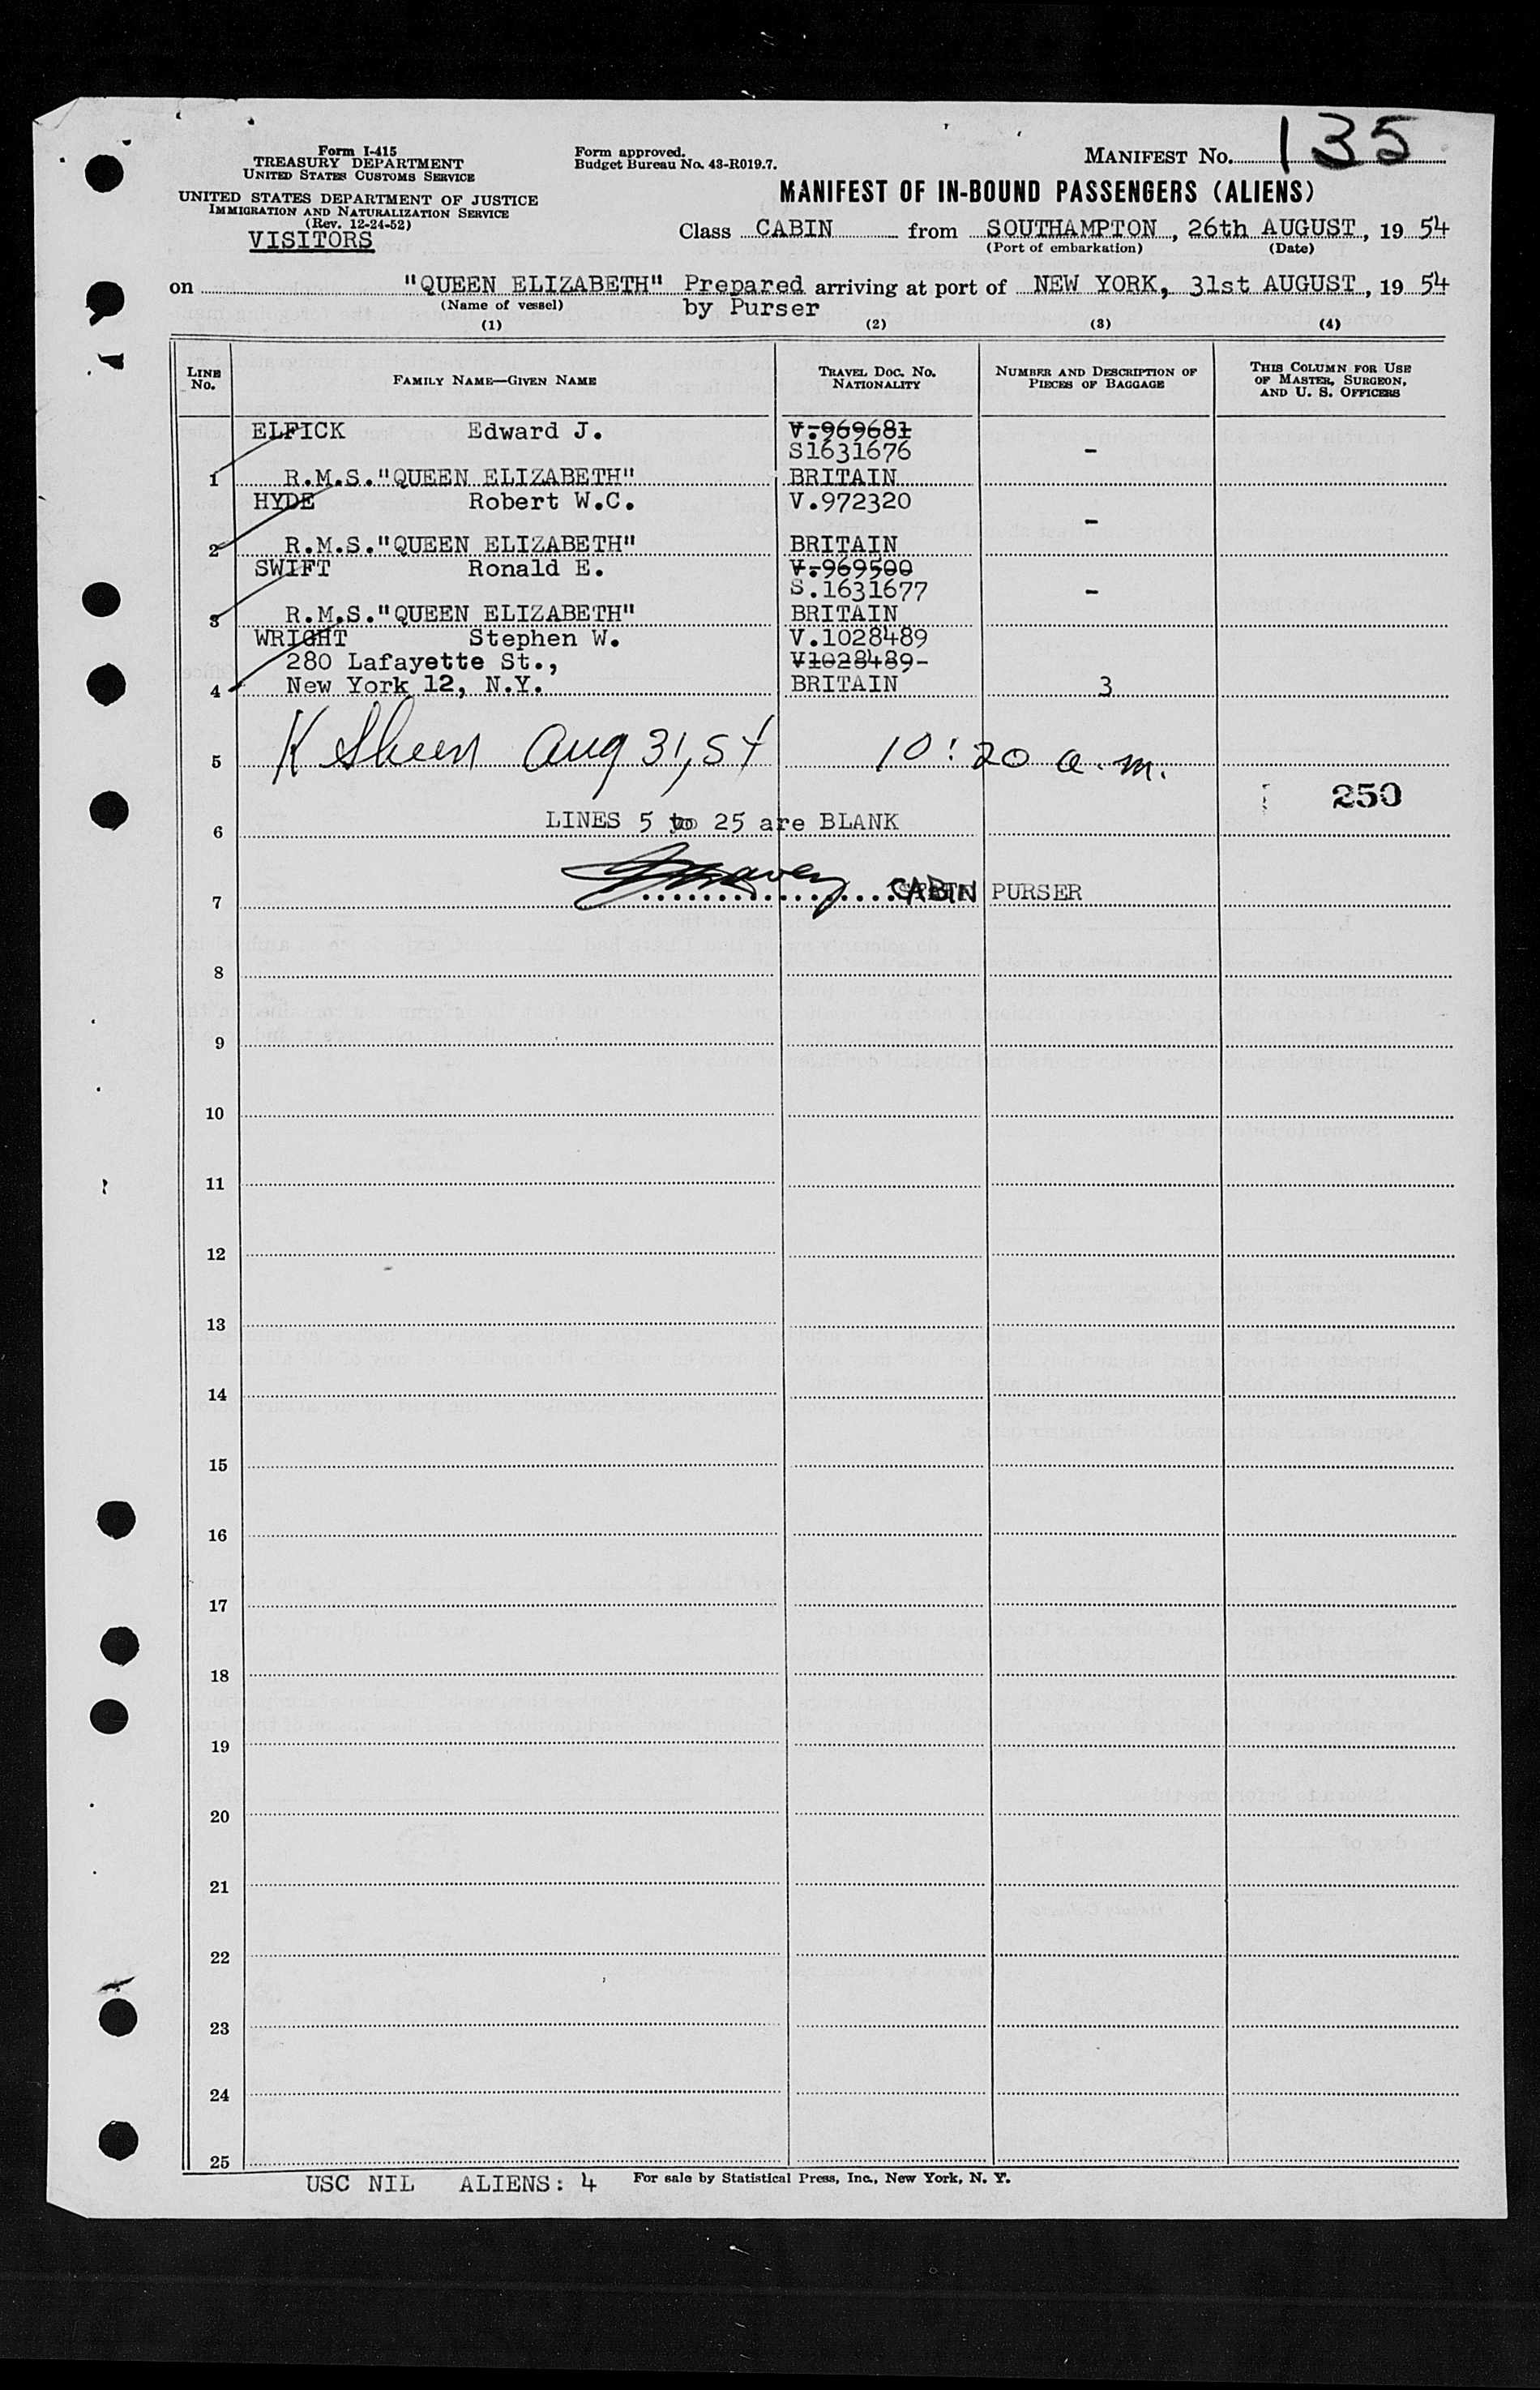 Form I-415
TREASURY DEPARTMENT
UNITED STATES CUSTOMS SERVICE
UNITED STATES DEPARTMENT OF JUSTICE
IMMIGRATION AND NATURALIZATION SERVICE
(Rev. 12-24-52)
VISITORS
Form approved.
Budget Bureau No. 43-R019.7.
MANIFEST No. 135
MANIFEST OF IN-BOUND PASSENGERS (ALIENS)
Class CABIN from SOUTHAMPTON, 26th AUGUST, 19 54
(Port of embarkation) (Date)
on "QUEEN ELIZABETH" Prepared arriving at port of NEW YORK, 31st AUGUST, 19 54
(Name of vessel) by Purser
(1) (2) (3) (4)
LINE No. FAMILY NAME—GIVEN NAME TRAVEL DOC. No. NATIONALITY NUMBER AND DESCRIPTION OF PIECES OF BAGGAGE THIS COLUMN FOR USE OF MASTER, SURGEON, AND U. S. OFFICERS
ELFICK Edward J. V.969681
S1631676 -
1 R.M.S."QUEEN ELIZABETH" BRITAIN
HYDE Robert W.C. V.972320
-
2 R.M.S."QUEEN ELIZABETH" BRITAIN
SWIFT Ronald E. V.969500
S.1631677 -
3 R.M.S."QUEEN ELIZABETH" BRITAIN
WRIGHT Stephen W. V.1028489
280 Lafayette St., V1028489-
4 New York 12, N.Y. BRITAIN 3
5 K Aug 31, 54 10:20 a.m.
250
6 LINES 5 to 25 are BLANK
7 CABIN PURSER
8
9
10
11
12
13
14
15
16
17
18
19
20
21
22
23
24
25
USC NIL ALIENS: 4 For sale by Statistical Press, Inc., New York, N. Y.